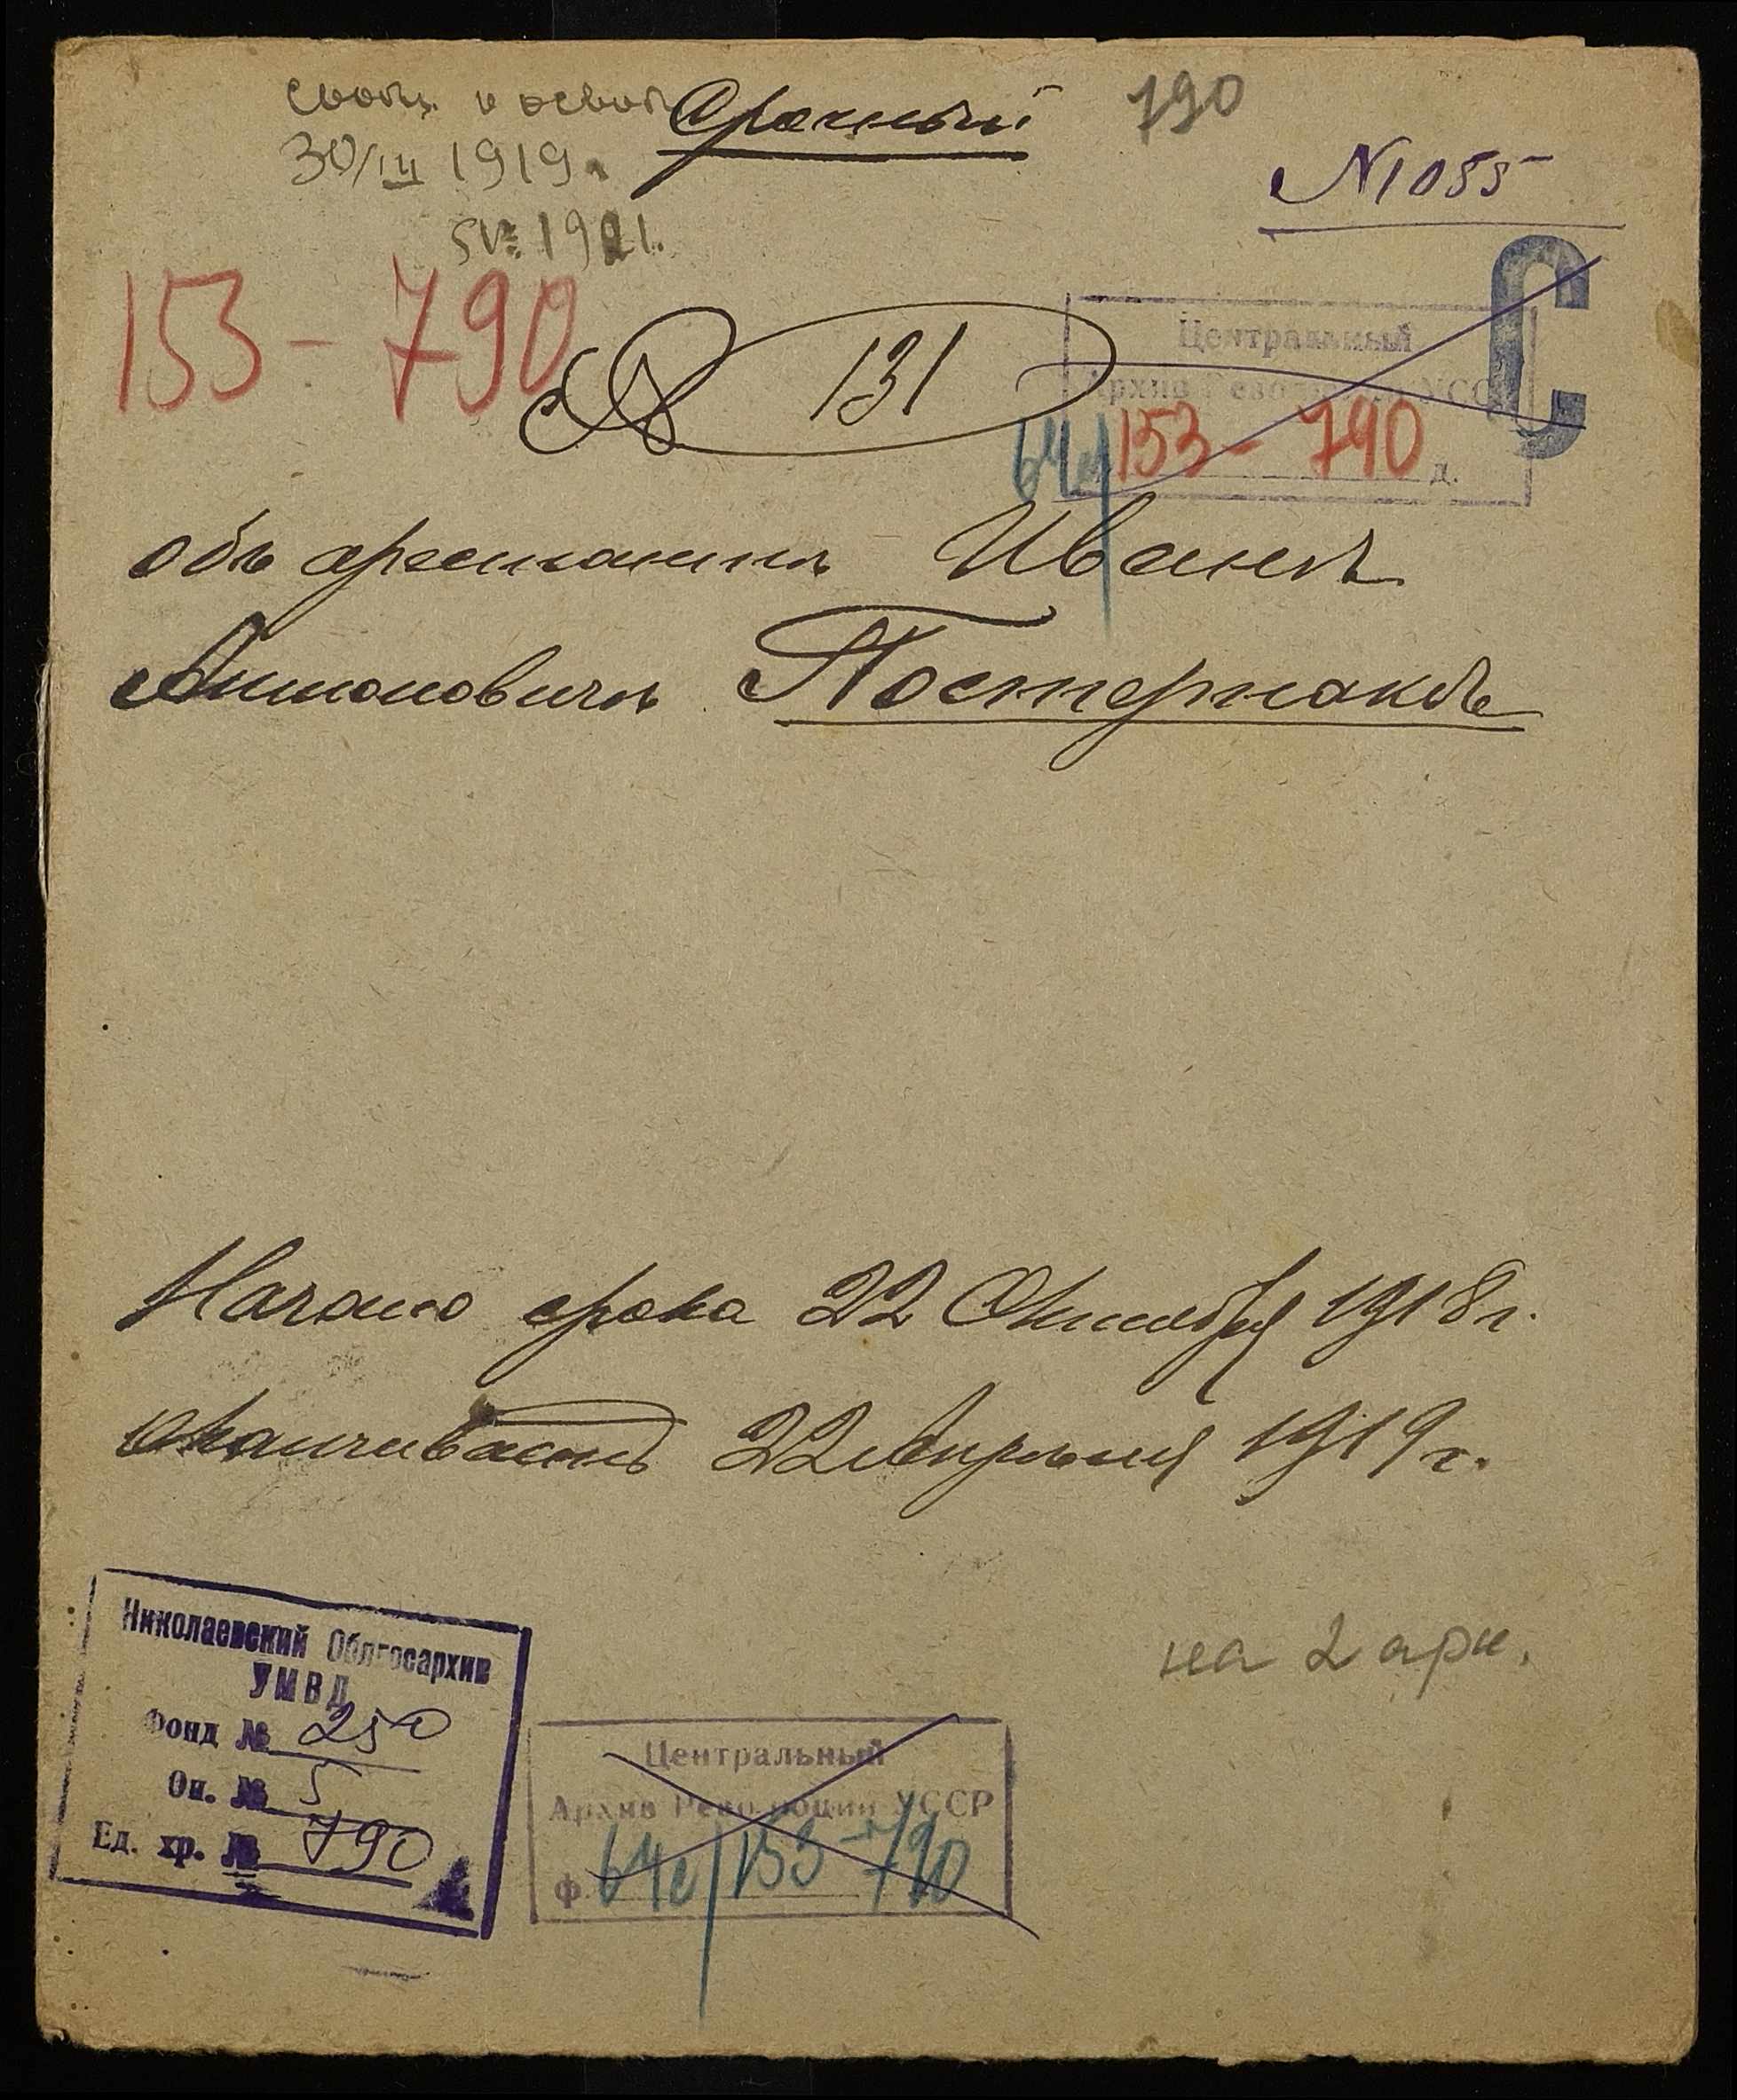 Срочный
790
сообщ. о освоб
30/III 1919.
N 1055
1921.
153 - 790
N 131
Центральный
Архив Революции УССР
64с/153 - 790 д.
С
объ арестантѣ Иванѣ
Антоновичѣ Постернакѣ
Начало срока 22 Октября 1918 г.
оканчивается 22 Апрѣля 1919 г.
Николаевский Облгосархив
УМВД
Фонд № 250
Оп. № 5
Ед. хр. № 790
на 2 арк.
Центральный
Архив Революции УССР
ф. 64с/153 - 790